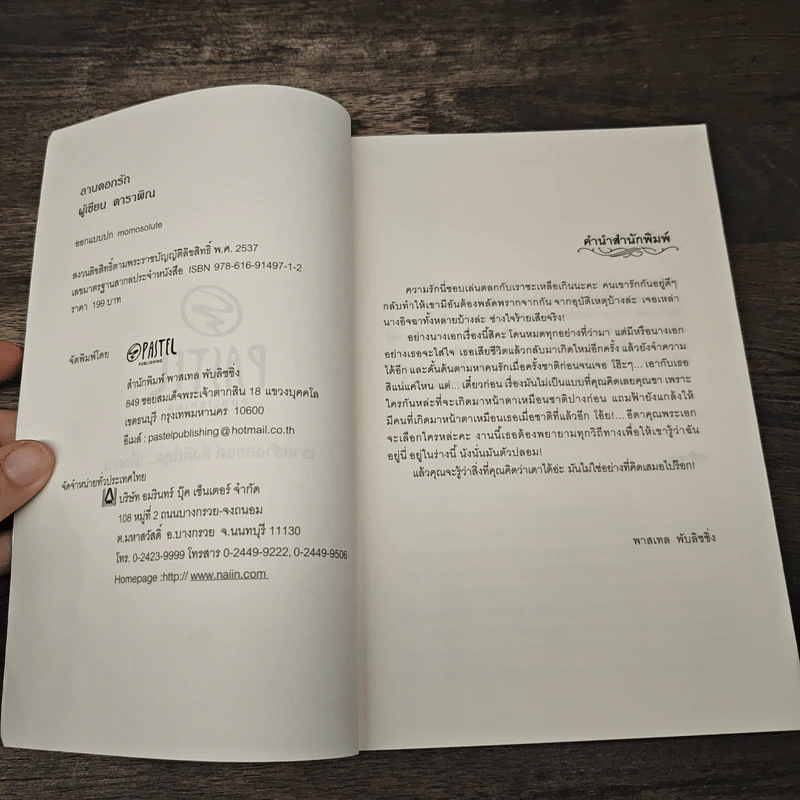 ลานดอกรัก
ผู้เขียน ดาราพิณ
ออกแบบปก momosolute
สงวนลิขสิทธิ์ตามพระราชบัญญัติลิขสิทธิ์ พ.ศ. 2537
เลขมาตรฐานสากลประจำหนังสือ ISBN 978-616-91497-1-2
ราคา 199 บาท
จัดพิมพ์โดย
PASTEL
PUBLISHING
สำนักพิมพ์ พาสเทล พับลิชชิ่ง
849 ซอยสมเด็จพระเจ้าตากสิน 18 แขวงบุคคโล
เขตธนบุรี กรุงเทพมหานคร 10600
อีเมล์ : pastelpublishing@hotmail.co.th
จัดจำหน่ายทั่วประเทศไทย
บริษัท อมรินทร์ บุ๊ค เซ็นเตอร์ จำกัด
108 หมู่ที่ 2 ถนนบางกรวย-จงถนอม
ต.มหาสวัสดิ์ อ.บางกรวย จ.นนทบุรี 11130
โทร. 0-2423-9999 โทรสาร 0-2449-9222, 0-2449-9506
Homepage :http:// www.naiin.com
คำนำสำนักพิมพ์
ความรักนี่ชอบเล่นตลกกับเราซะเหลือเกินนะคะ คนเขารักกันอยู่ดีๆ
กลับทำให้เขามีอันต้องพลัดพรากจากกัน จากอุบัติเหตุบ้างล่ะ เจอเหล่า
นางอิจฉาทั้งหลายบ้างล่ะ ช่างใจร้ายเสียจริง!
อย่างนางเอกเรื่องนี้สิคะ โดนหมดทุกอย่างที่ว่ามา แต่มีหรือนางเอก
อย่างเธอจะใส่ใจ เธอเสียชีวิตแล้วกลับมาเกิดใหม่อีกครั้ง แล้วยังจำความ
ได้อีก และดั้นด้นตามหาคนรักเมื่อครั้งชาติก่อนจนเจอ โอ๊ะๆ... เอากับเธอ
สิแน่แค่ไหน แต่... เดี๋ยวก่อน เรื่องมันไม่เป็นแบบที่คุณคิดเลยคุณขา เพราะ
ใครกันหล่ะที่จะเกิดมาหน้าตาเหมือนชาติปางก่อน แถมฟ้ายังแกล้งให้
มีคนที่เกิดมาหน้าตาเหมือนเธอเมื่อชาติที่แล้วอีก โอ้ย!... อีตาคุณพระเอก
จะเลือกใครหล่ะคะ งานนี้เธอต้องพยายามทุกวิถีทางเพื่อให้เขารู้ว่าฉัน
อยู่นี่ อยู่ในร่างนี้ นังนั่นมันตัวปลอม!
แล้วคุณจะรู้ว่าสิ่งที่คุณคิดว่าเดาได้อ่ะ มันไม่ใช่อย่างที่คิดเสมอไปร๊อก!
พาสเทล พับลิชชิ่ง